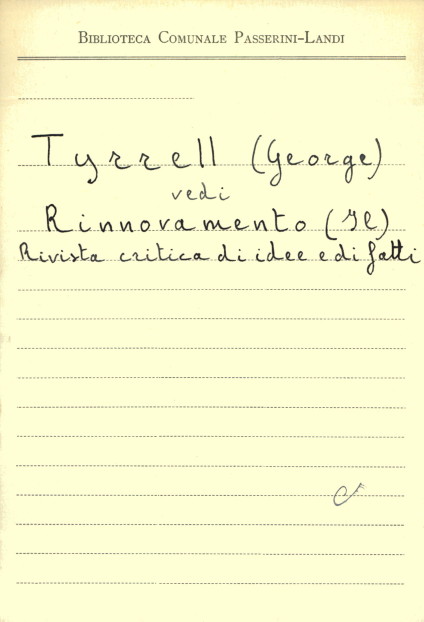 Biblioteca Comunale Passerini-Landi
Tyrrell (George)
vedi
Rinnovamento (Il)
Rivista critica di idee e di fatti